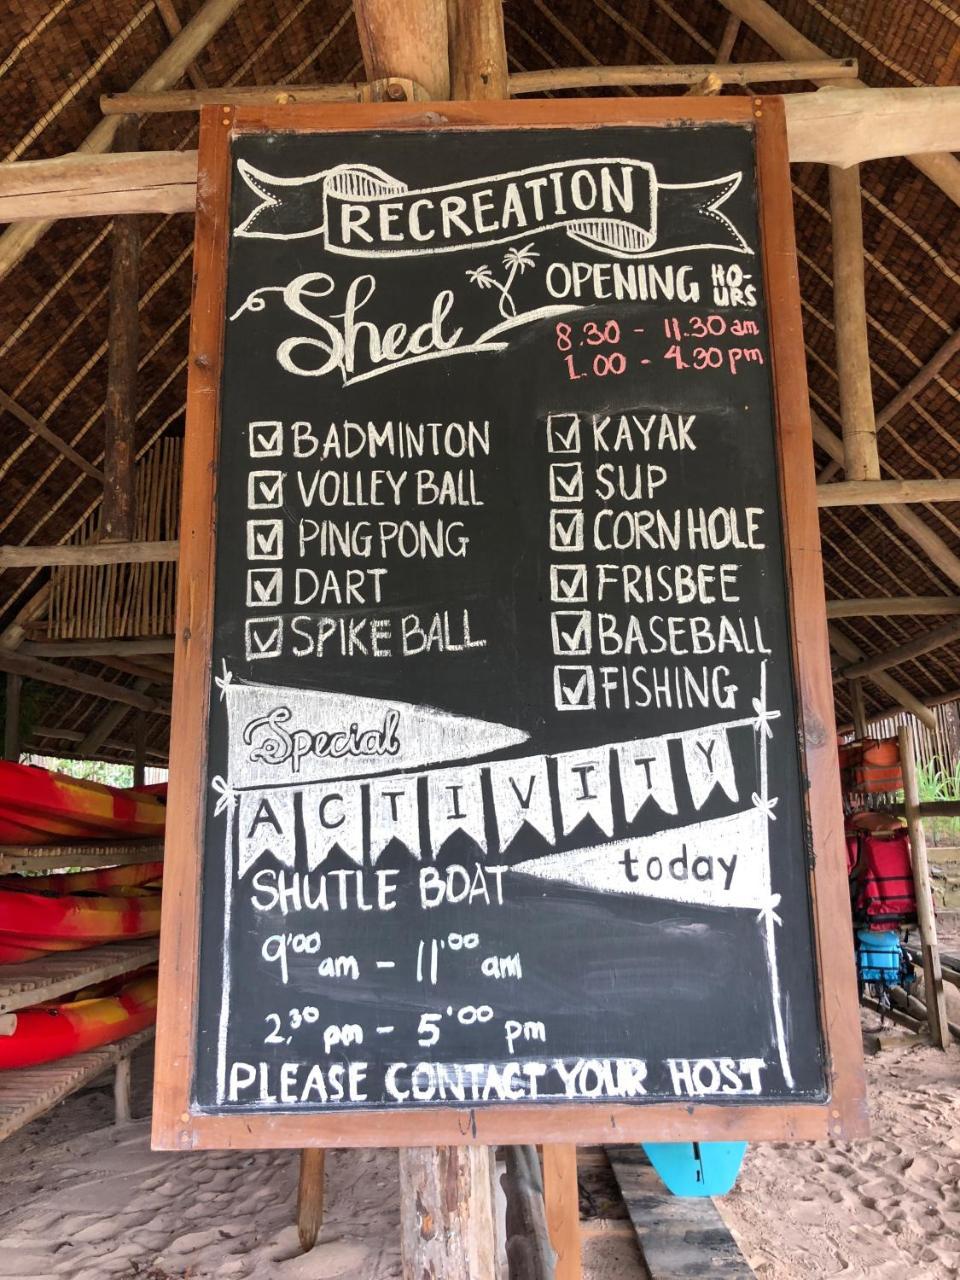 RECREATION
Shed
OPENING HO-
URS
8.30 - 11.30 am
1.00 - 4.30 pm
BADMINTON
VOLLEY BALL
PING PONG
DART
SPIKE BALL
KAYAK
SUP
CORN HOLE
FRISBEE
BASEBALL
FISHING
Special
ACTIVITY
today
SHUTLE BOAT
9'00 am - 11'00 am
2.30 pm - 5'00 pm
PLEASE CONTACT YOUR HOST